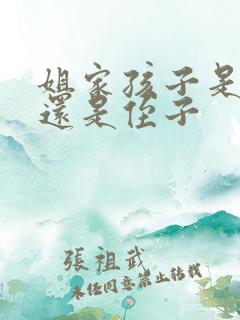 姐家孩子是
還是侄子
張祖武
未经同意禁止转载